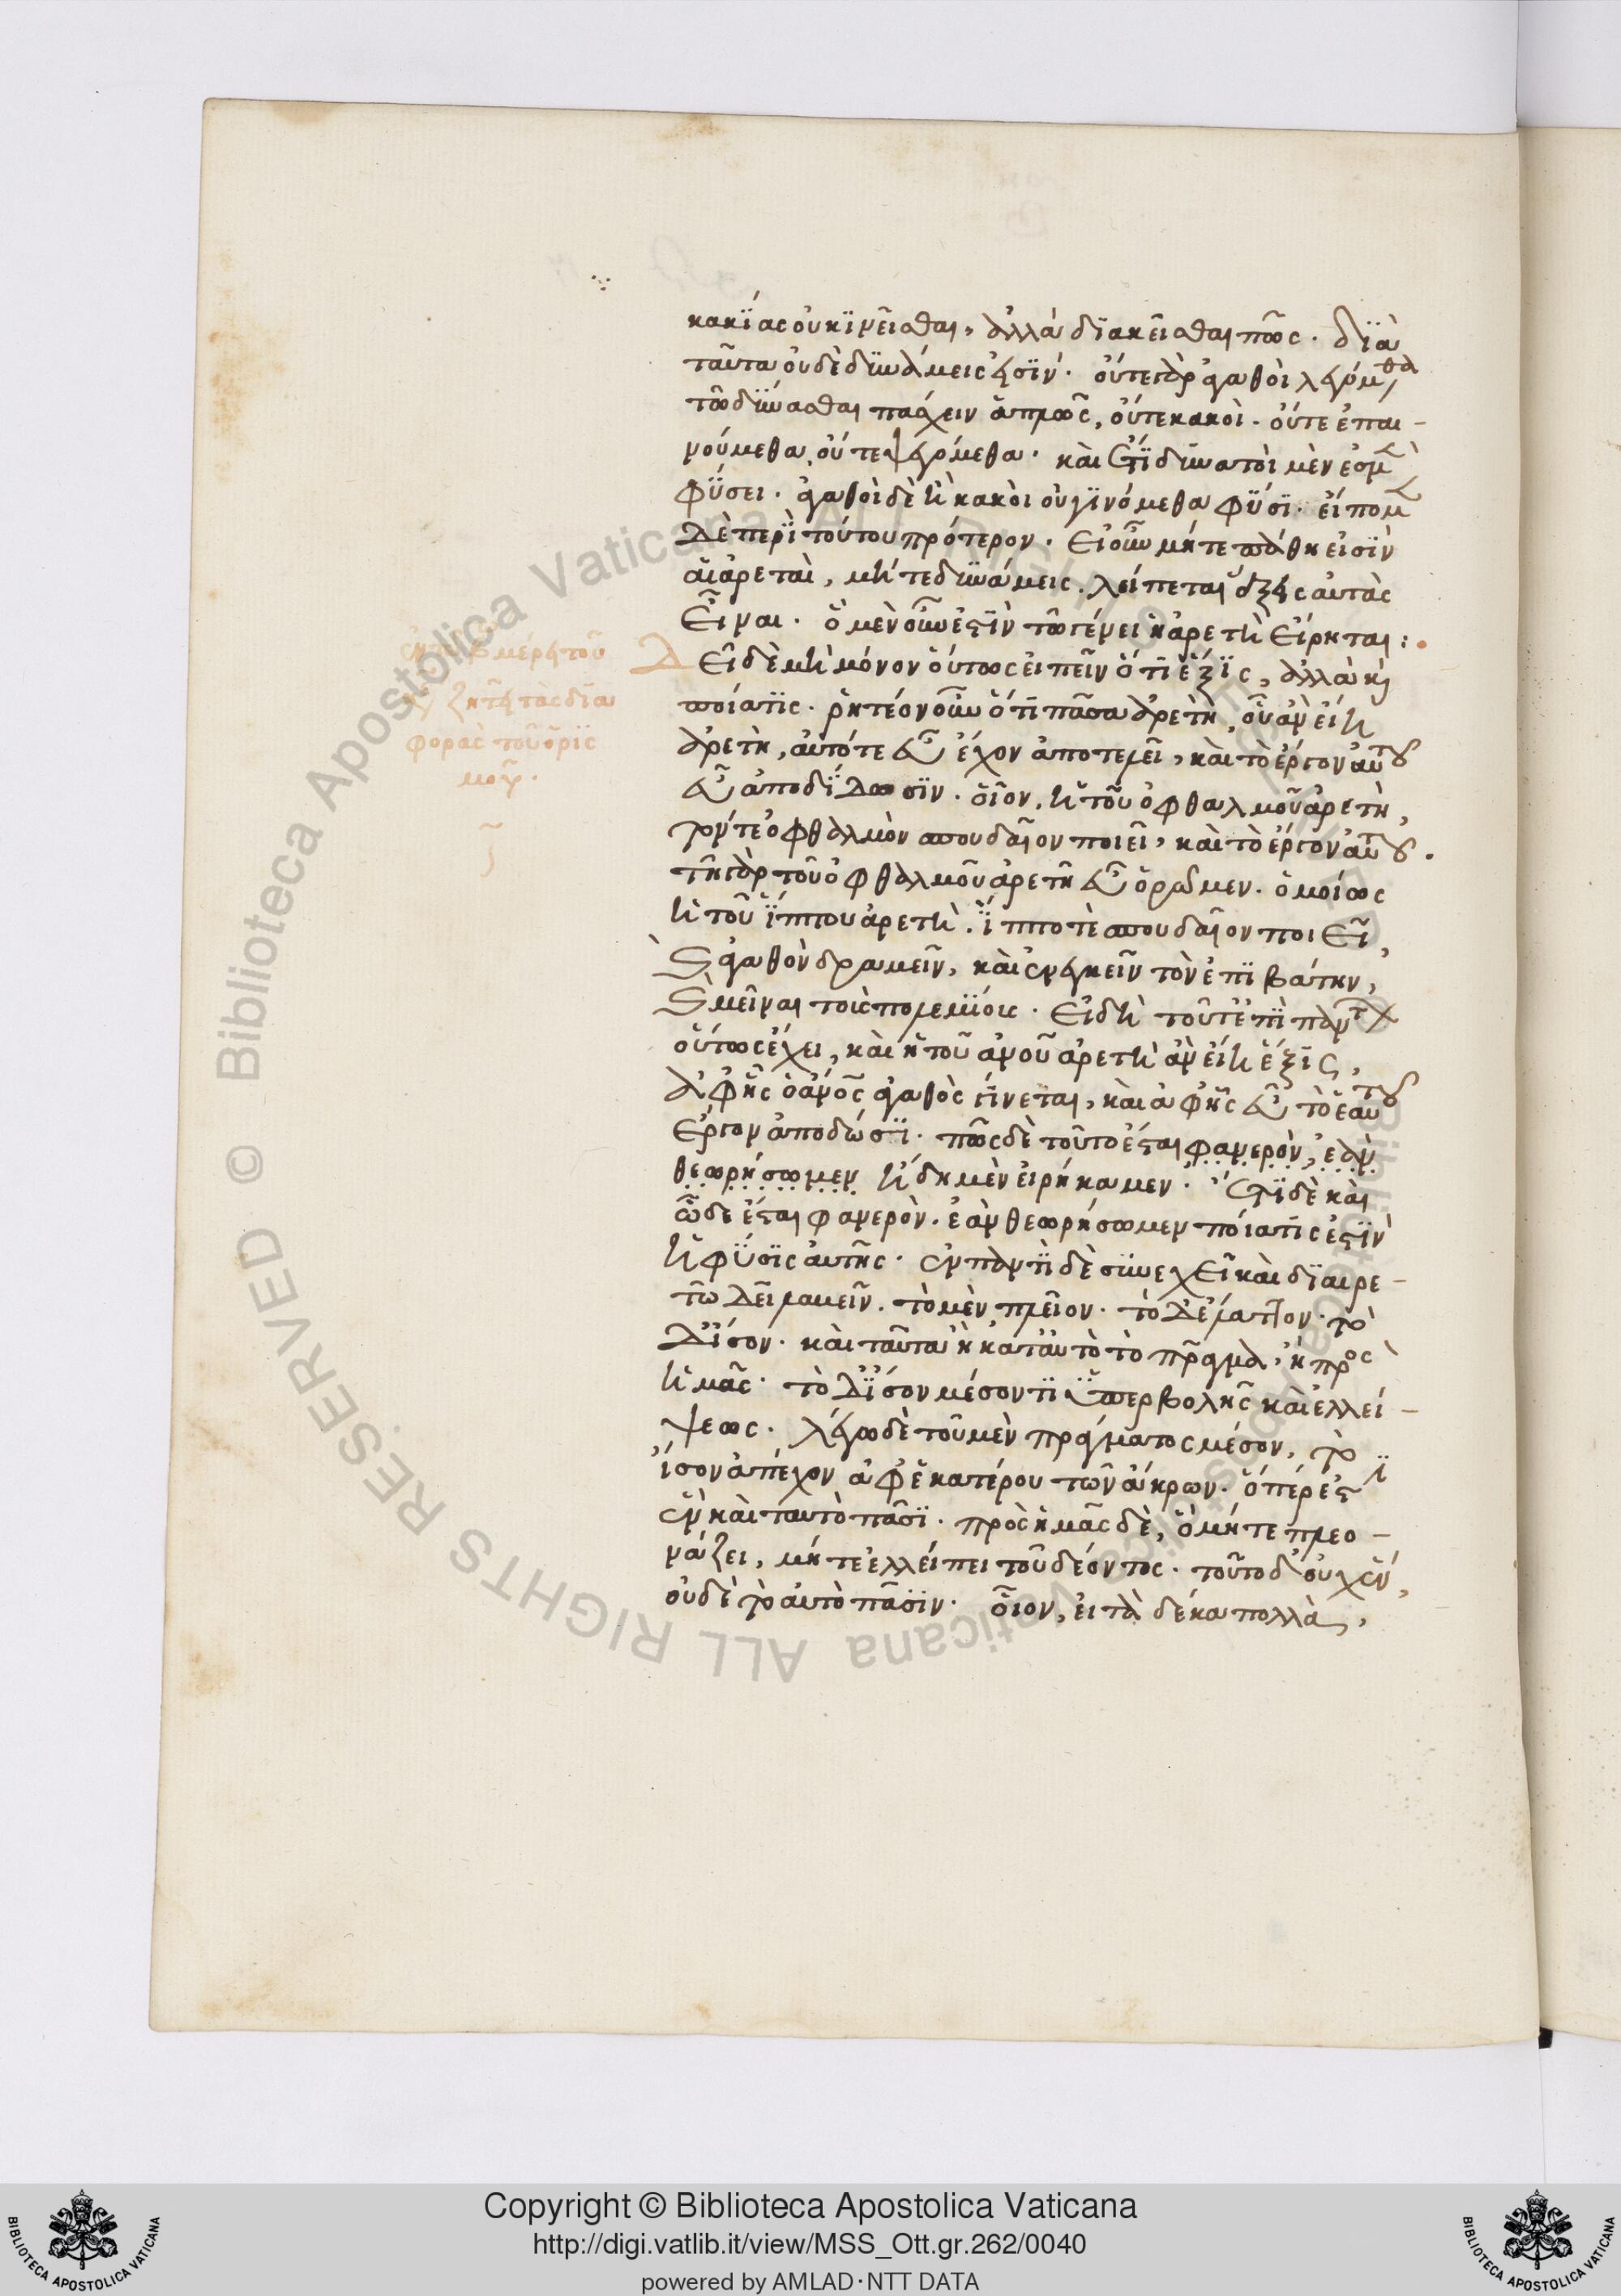 κακίας οὐ κινεῖσθαι, ἀλλὰ διακεῖσθαι πῶς. διὰ
ταῦτα οὐδὲ δυνάμεις εἰσίν. οὔτε γὰρ ἀγαθοὶ λεγόμεθα
τῶ δύνασθαι πάσχειν ἁπλῶς, οὔτε κακοὶ. οὔτε ἐπαι-
νούμεθα οὔτε ψεγόμεθα. καὶ ἔτι δυνατοὶ μὲν ἐσμὲν
φύσει. ἀγαθοὶ δὲ ἢ κακοὶ οὐ γινόμεθα φύσι. εἴπομεν
δὲ περὶ τούτου πρότερον. Εἰ οὖν μήτε πάθη εἰσὶν
αἱ ἀρεταὶ, μήτε δυνάμεις. λείπεται ἕξεις αὐτὰς
εἶναι. ὅ μὲν οὖν ἐστὶν τῶ γένει ἡ ἀρετὴ εἴρηται:
Δεῖ δὲ μὴ μόνον οὕτως εἰπεῖν ὅτι ἕξις, ἀλλὰ καὶ
ποία τις. ῥητέον οὖν ὅτι πᾶσα ἀρετὴ, οὗ ἂν εἴη
ἀρετὴ, αὐτό τε εὖ ἔχον ἀποτελεῖ, καὶ τὸ ἔργον αὐτοῦ
εὖ ἀποδίδωσιν. οἷον, ἡ τοῦ ὀφθαλμοῦ ἀρετὴ,
τόν τε ὀφθαλμὸν σπουδαῖον ποιεῖ, καὶ τὸ ἔργον αὐτοῦ.
τῆ γὰρ τοῦ ὀφθαλμοῦ ἀρετῆ εὖ ὁρῶμεν. ὁμοίως
ἡ τοῦ ἵππου ἀρετὴ. ἵππό τὲ σπουδαῖον ποιεῖ,
καὶ ἀγαθὸν δραμεῖν, καὶ ἐνεγκεῖν τὸν ἐπιβάτην,
καὶ μεῖναι τοὺς πολεμίους. Εἰ δὴ τοῦτ' ἐπὶ πάντων
οὕτως ἔχει, καὶ ἡ τοῦ ἀνοῦ ἀρετὴ ἂν εἴη ἕξις,
ἀφ' ἧς ὁ ἀνος ἀγαθὸς γίνεται, καὶ ἀφ' ἧς εὖ τὸ ἑαυτοῦ
ἔργον ἀποδώσει. πῶς δὲ τοῦτο ἔσται φανερὸν, ἐὰν
θεωρήσωμεν ἤδη μὲν εἰρήκαμεν. ἔτι δὲ καὶ
ὧδε ἔσται φανερὸν. ἐὰν θεωρήσωμεν ποία τίς ἐστὶν
ἡ φύσις αὐτῆς. ἐν παντὶ δὲ συνεχεῖ καὶ διαιρε-
τῶ δεῖ λαβεῖν. τὸ μὲν πλεῖον. τὸ δ' ἔλαττον. τὸ
δ' ἴσον. καὶ ταῦτα ἢ κατ' αὐτὸ τὸ πρᾶγμα, ἢ πρὸς
ἡμᾶς. τὸ δ' ἴσον μέσον τι ὑπερβολῆς καὶ ἐλλεί-
ψεως. λέγω δὲ τοῦ μὲν πράγματος μέσον, τὸ
ἴσον ἀπέχον ἀφ' ἑκατέρου τῶν ἄκρων. ὅπερ ἐστὶ
ἓν καὶ ταυτὸ πᾶσι. πρὸς ἡμᾶς δὲ, ὃ μήτε πλεο-
νάζει, μήτε ἐλλείπει τοῦ δέοντος. τοῦτο δ' οὐχ ἕν,
οὐδὲ τὸ αὐτὸ πᾶσιν. οἷον, εἰ τὰ δέκα πολλὰ,
ζητεῖ τὰς δια
φορὰς τοῦ ὁρις
μοῦ.
© Biblioteca Apostolica Vaticana ALL RIGHTS RESERVED
Copyright © Biblioteca Apostolica Vaticana
http://digi.vatlib.it/view/MSS_Ott.gr.262/0040
powered by AMLAD·NTT DATA
BIBLIOTECA APOSTOLICA VATICANA
BIBLIOTECA APOSTOLICA VATICANA